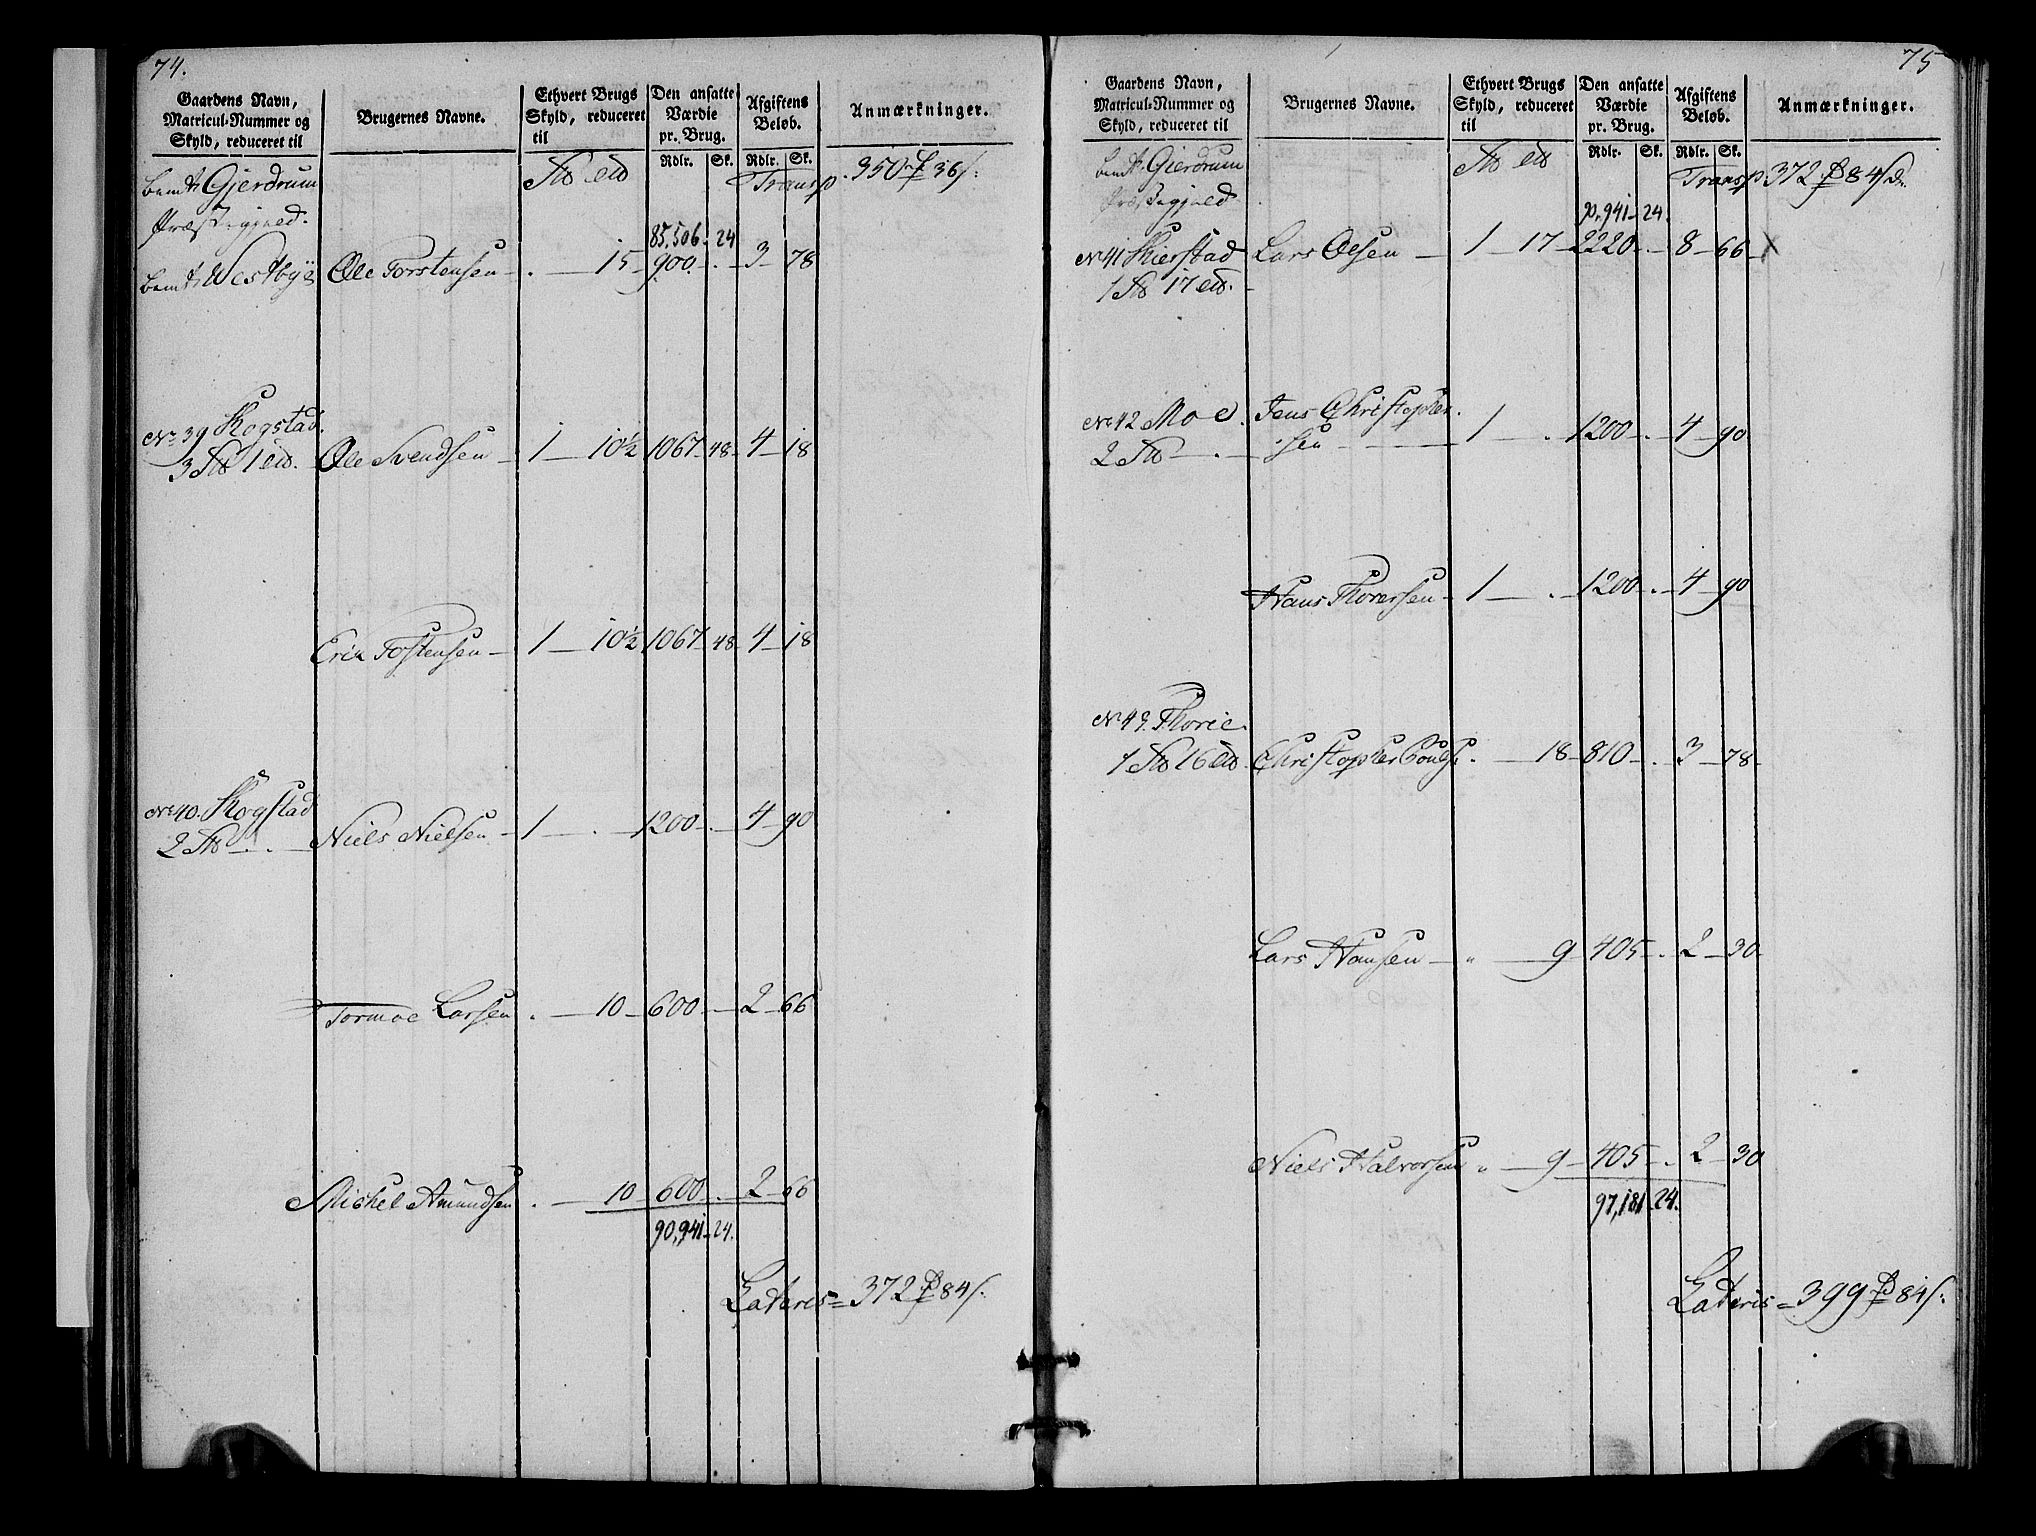 74.
Gaardens Navn, Matricul-Nummer og Skyld, reduceret til
Brugernes Navne.
Ethvert Brugs Skyld, reduceret til
Den ansatte Værdie pr. Brug.
Afgiftens Beløb.
Anmærkninger.
Rdlr. Sk. Rdlr. Sk.
bemte Gjerdrum Transp. 350 36
Præstegjæld.
85,506 - 24
bemte Westbye Ole Torstensen - . - 15 - 900 - . - 3 - 78
No 39 Skogstad.
3 1 Ole Svendsen - 1 - 10½ 1067 - 48 - 4 - 18
Erik Tostensen - 1 - 10½ 1067 - 48 - 4 - 18
No 40. Skogstad
2 Niels Nielsen - 1 - . - 1200 - . - 4 - 90
Tormoe Larsen . - 10 - 600 - . - 2 - 66
Michel Amundsen . - 10 600 - . - 2 - 66
90,941 - 24.
Lateris = 372 84
75
Gaardens Navn, Matricul-Nummer og Skyld, reduceret til
Brugernes Navne.
Ethvert Brugs Skyld, reduceret til
Den ansatte Værdie pr. Brug.
Afgiftens Beløb.
Anmærkninger.
Rdlr. Sk. Rdlr. Sk.
bemte Gjerdrum Transp 372 84
Præstegjæld
90,941 - 24.
No 41 Skierstad Lars Olsen - 1 - 17 - 2220 - . - 8 - 66 - X
1 17
No 42 Moe. Jens Christopher-
2 sen - 1 - . - 1200 - . - 4 - 90
Hans Thoresen - 1 - . - 1200 - . - 4 - 90
No 49. Thorie
1 16 Christopher Pouls: . - 18 - 810 - . - 3 - 78
Lars Hansen - " - 9 - 405 - . - 2 - 30
Niels Halvorsen " - 9 - 405 - . - 2 - 30
97,181 - 24.
Lateris = 399 84